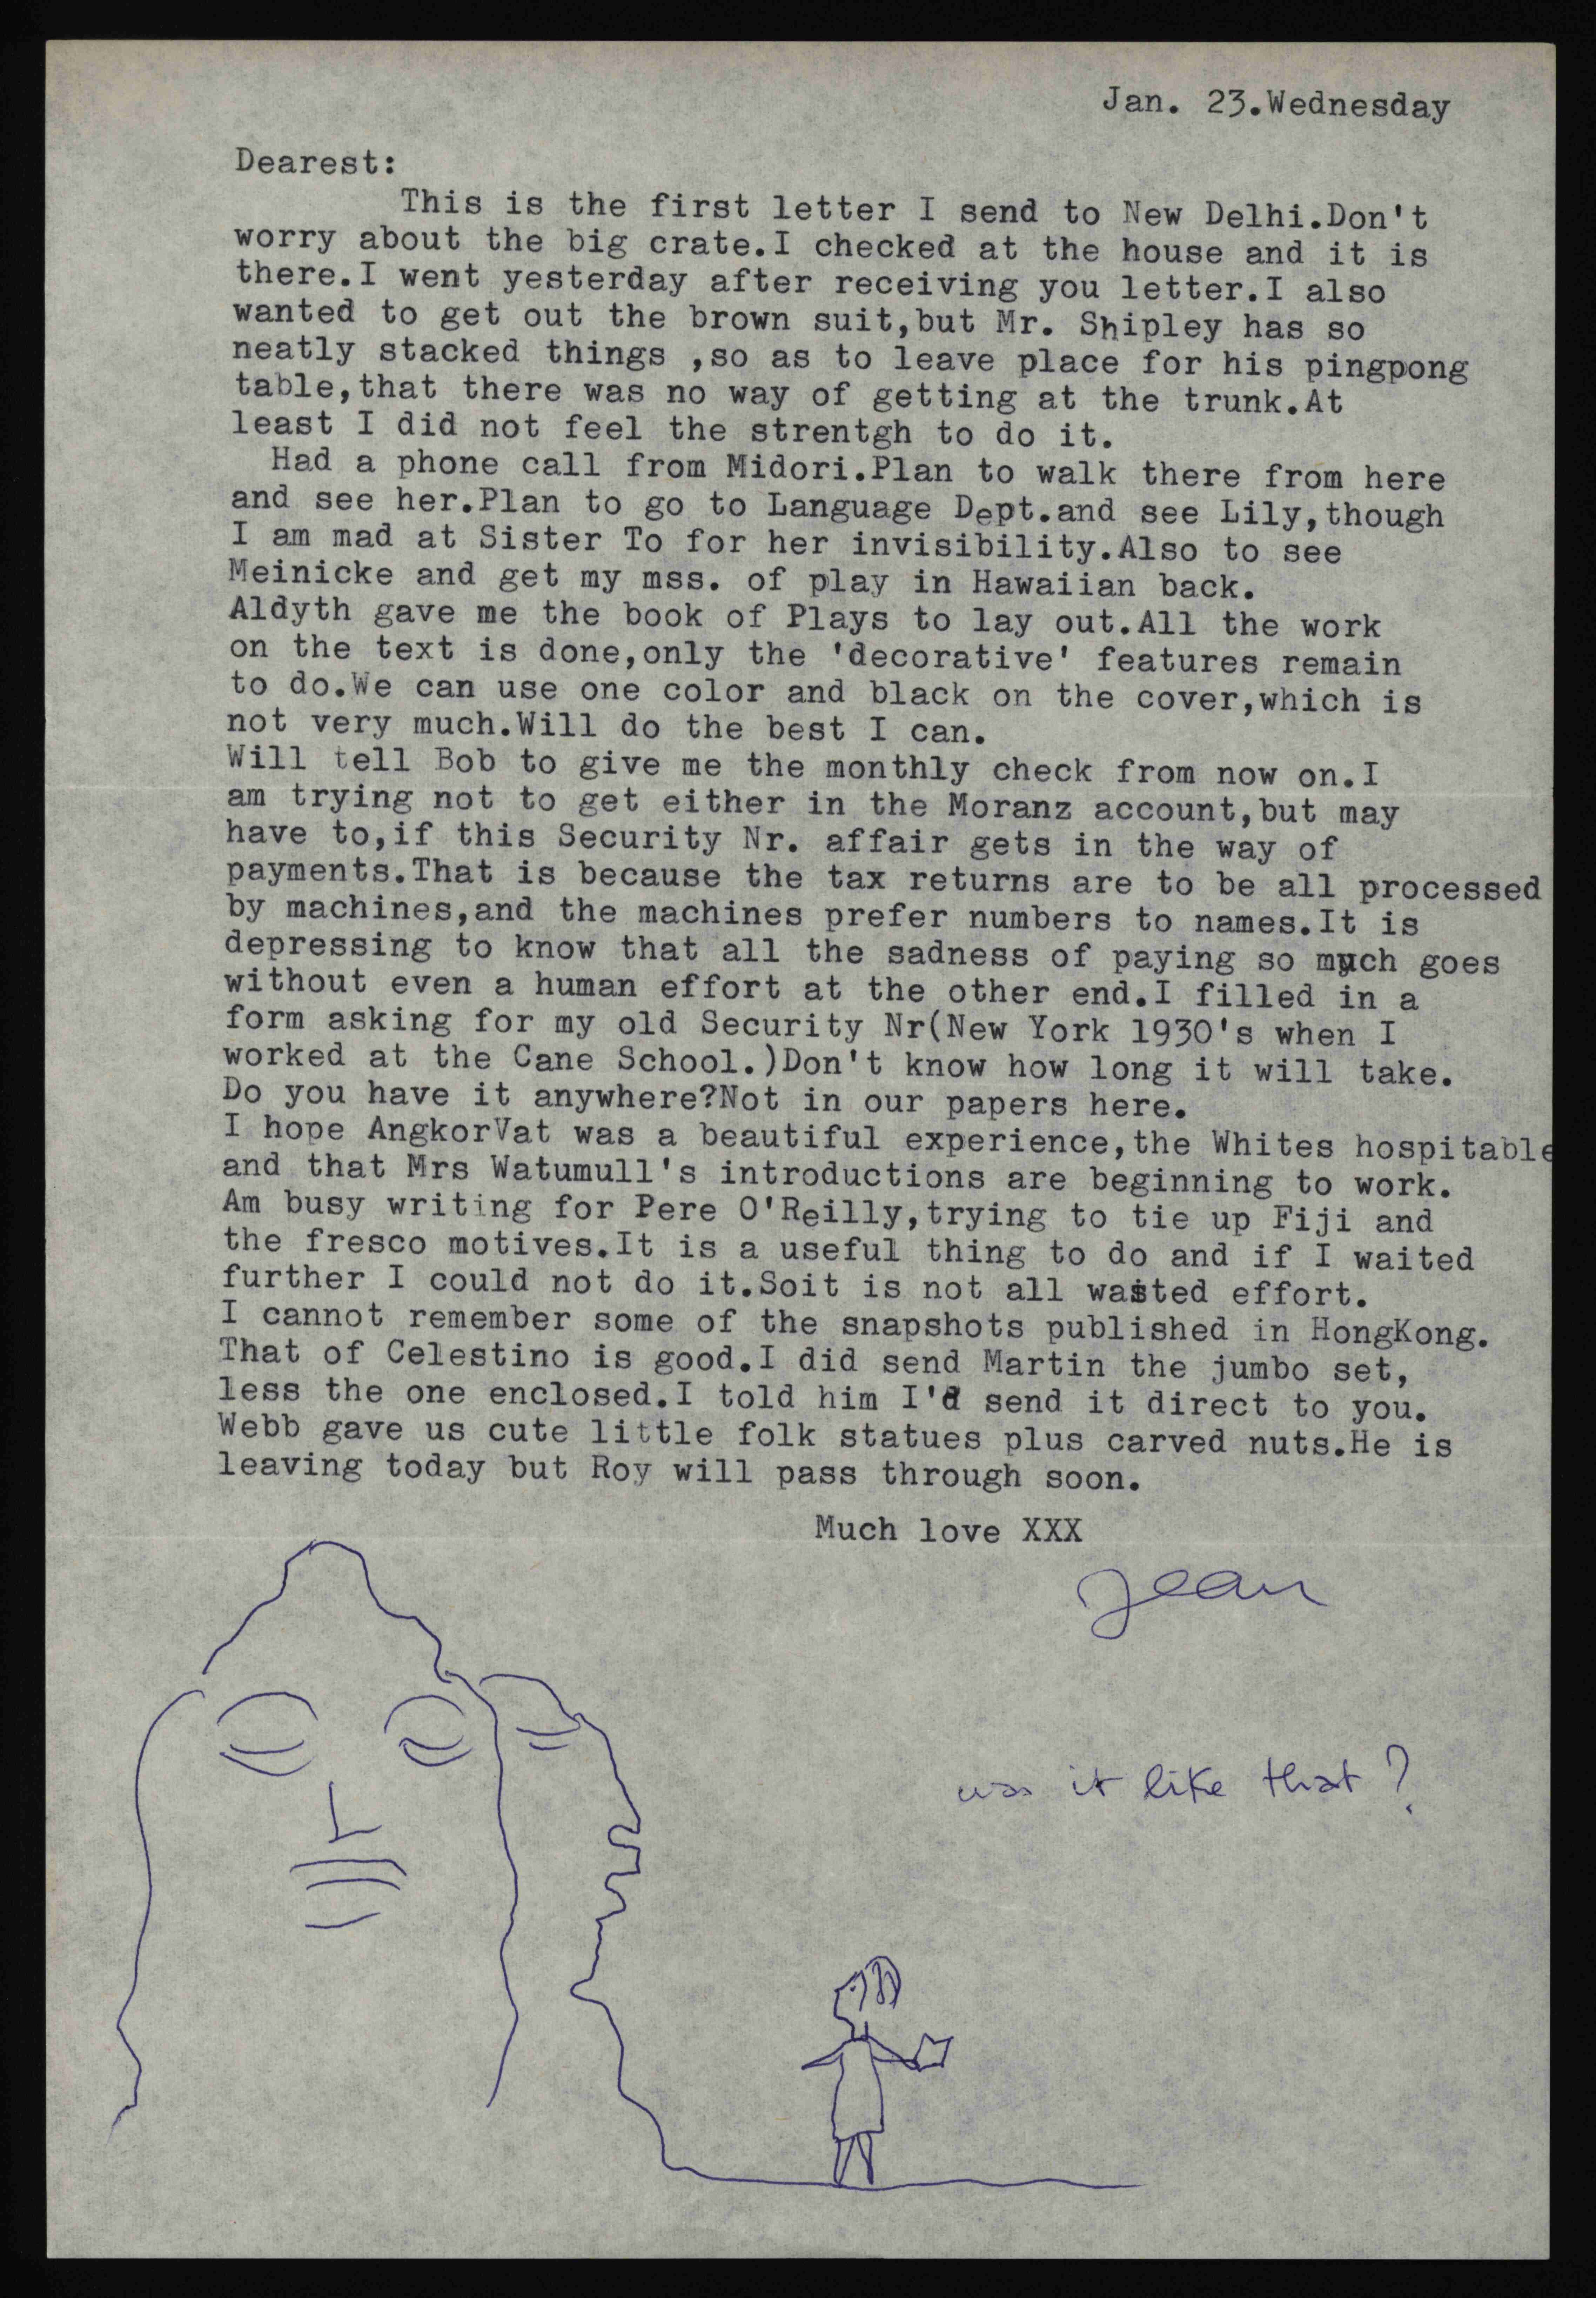 Jan. 23.Wednesday
Dearest:
This is the first letter I send to New Delhi.Don't
worry about the big crate.I checked at the house and it is
there.I went yesterday after receiving you letter.I also
wanted to get out the brown suit,but Mr. Shipley has so
neatly stacked things ,so as to leave place for his pingpong
table,that there was no way of getting at the trunk.At
least I did not feel the strentgh to do it.
Had a phone call from Midori.Plan to walk there from here
and see her.Plan to go to Language Dept.and see Lily,though
I am mad at Sister To for her invisibility.Also to see
Meinicke and get my mss. of play in Hawaiian back.
Aldyth gave me the book of Plays to lay out.All the work
on the text is done,only the 'decorative' features remain
to do.We can use one color and black on the cover,which is
not very much.Will do the best I can.
Will tell Bob to give me the monthly check from now on.I
am trying not to get either in the Moranz account,but may
have to,if this Security Nr. affair gets in the way of
payments.That is because the tax returns are to be all processed
by machines,and the machines prefer numbers to names.It is
depressing to know that all the sadness of paying so much goes
without even a human effort at the other end.I filled in a
form asking for my old Security Nr(New York 1930's when I
worked at the Cane School.)Don't know how long it will take.
Do you have it anywhere?Not in our papers here.
I hope AngkorVat was a beautiful experience,the Whites hospitable
and that Mrs Watumull's introductions are beginning to work.
Am busy writing for Pere O'Reilly,trying to tie up Fiji and
the fresco motives.It is a useful thing to do and if I waited
further I could not do it.Soit is not all wasted effort.
I cannot remember some of the snapshots published in HongKong.
That of Celestino is good.I did send Martin the jumbo set,
less the one enclosed.I told him I'd send it direct to you.
Webb gave us cute little folk statues plus carved nuts.He is
leaving today but Roy will pass through soon.
Much love XXX
Jean
was it like that ?